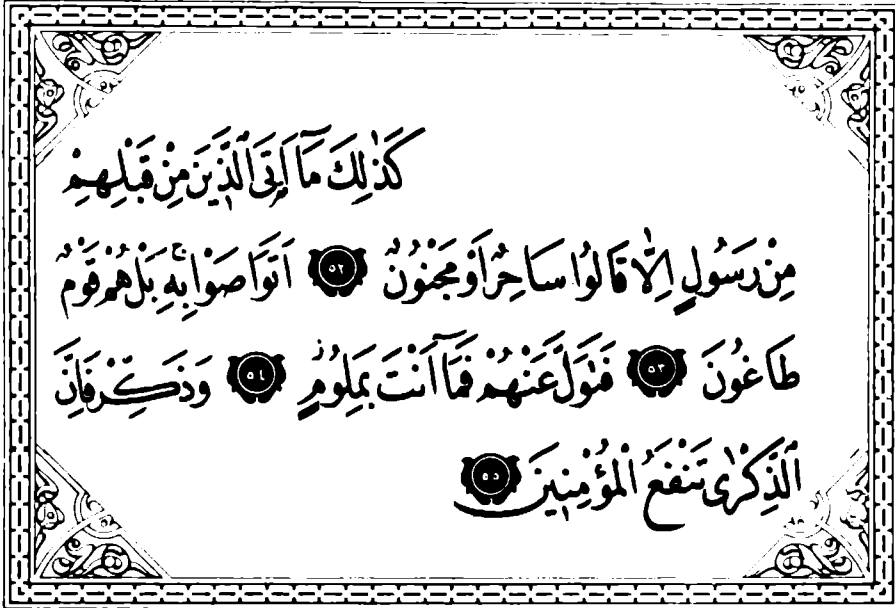 كَذٰلِكَ مَٓا اَتَى الَّذٖينَ مِنْ قَبْلِهِمْ
مِنْ رَسُولٍ اِلَّا قَالُوا سَاحِرٌ اَوْ مَجْنُونٌ ﴿٥٢﴾ اَتَوَاصَوْا بِهٖۚ بَلْ هُمْ قَوْمٌ
طَاغُونَ ﴿٥٣﴾ فَتَوَلَّ عَنْهُمْ فَمَٓا اَنْتَ بِمَلُومٍؗ ﴿٥٤﴾ وَذَكِّرْ فَاِنَّ
الذِّكْرٰى تَنْفَعُ الْمُؤْمِنٖينَ ﴿٥٥﴾